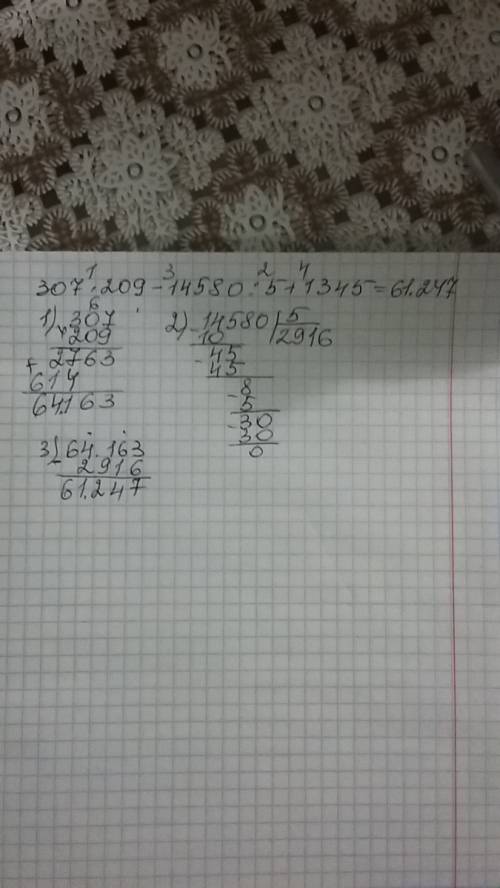 1 3 2 4
307·209-14580:5+1345=61.247
6
1) 307 2) 14580 | 5
× 209 - 10 2916
2763 - 45
+ 614 45
64.163 - 8
5
- 30
30
0
3) 64.163
- 2916
61.247